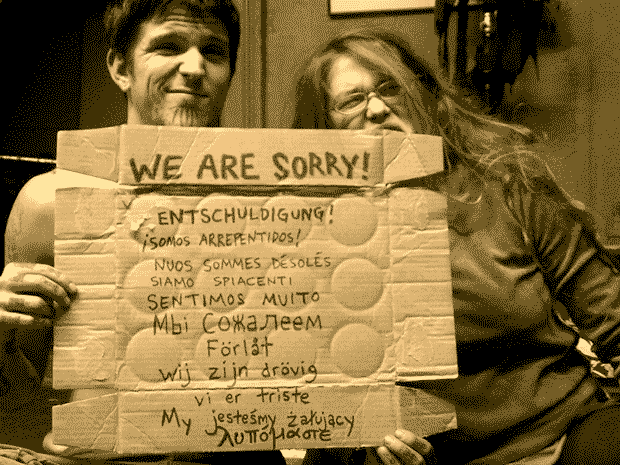 WE ARE SORRY!
ENTSCHULDIGUNG!
¡SOMOS ARREPENTIDOS!
NUOS SOMMES DÉSOLÉS
SIAMO SPIACENTI
SENTIMOS MUITO
Мы Сожалеем
Förlåt
wij zijn drövig
vi er triste
My jesteśmy żałujący
λυπόμαστε